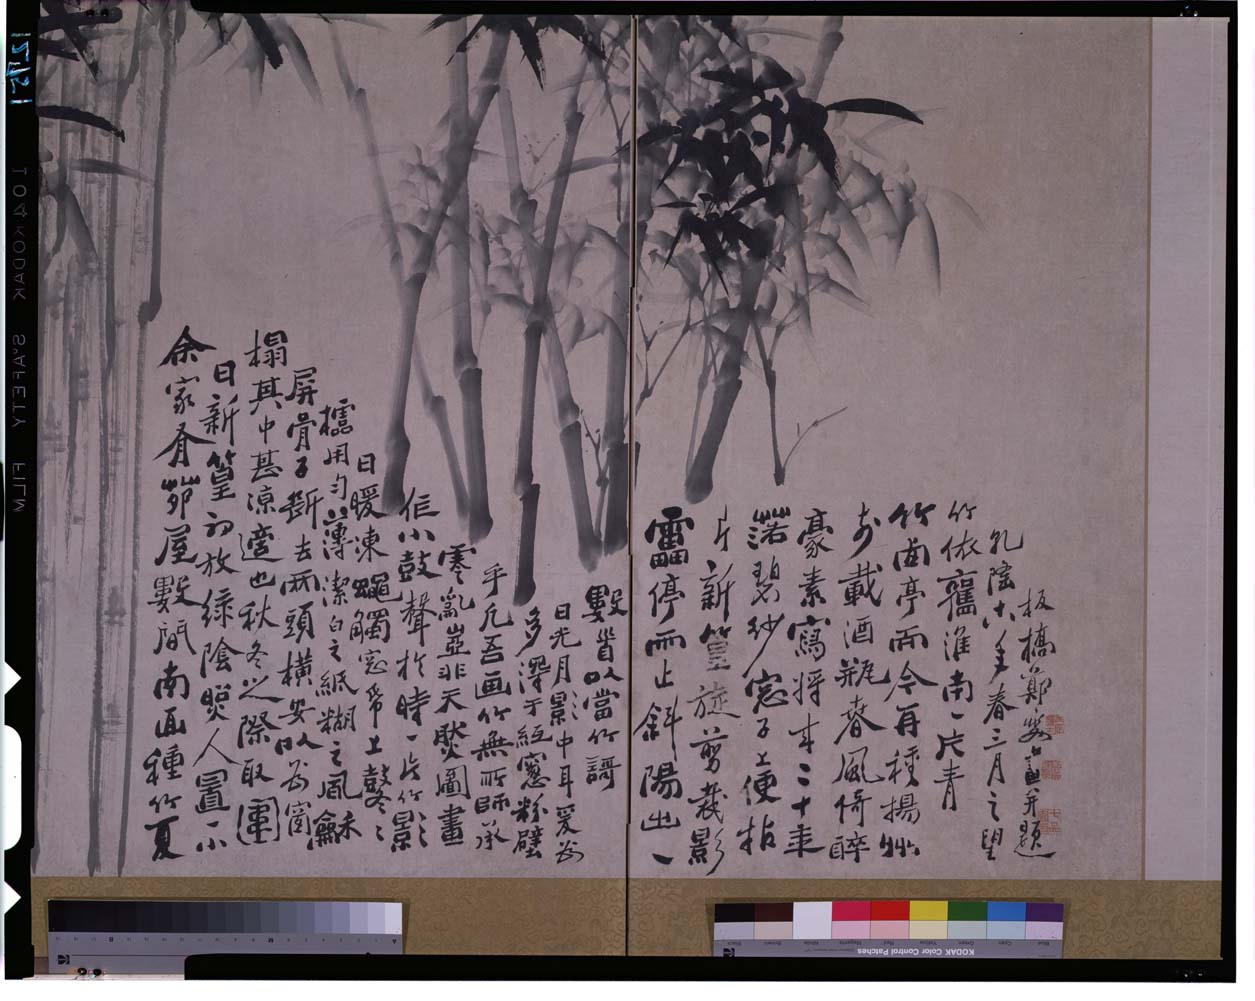 余家有茆屋數間南面種竹夏
日新篁初放綠陰照人置一小
榻其中甚涼適也秋冬之際取圍
屏骨子斷去兩頭橫安以為窗
櫺用勻薄潔白之紙糊之風龢
日暖凍蠅觸窗帋上鼕〻
作小鼓聲於時一片竹影
零亂豈非天然圖畫
乎凡吾画竹無所師承
多得于紙窗粉壁
日光月影中耳爰為
數以當竹謌
靁停雨止斜陽出一
片新篁旋剪裁影
落碧紗窗子上便拈
豪素寫將來二十年
前載酒瓶春風倚醉
竹西亭而今再種揚州
竹依舊淮南一片青
乾隆十八年春三月之望
板橋鄭燮畫并題
KODAK SAFETY FILM
KODAK Color Control Patches